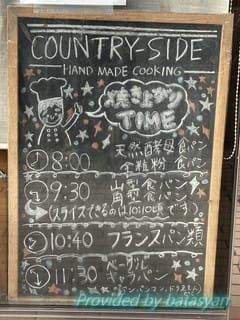 COUNTRY-SIDE
HAND MADE COOKING
焼き上がり
TIME
8:00
天然酵母食パン
全粒粉 食パン
9:30
山型食パン
角型食パン
(スライスできるのは10:10頃です)。
10:40 フランスパン類
11:30
ベーグル
キャラパン
アンパンマン,ドラえもん
Provided by batasyan